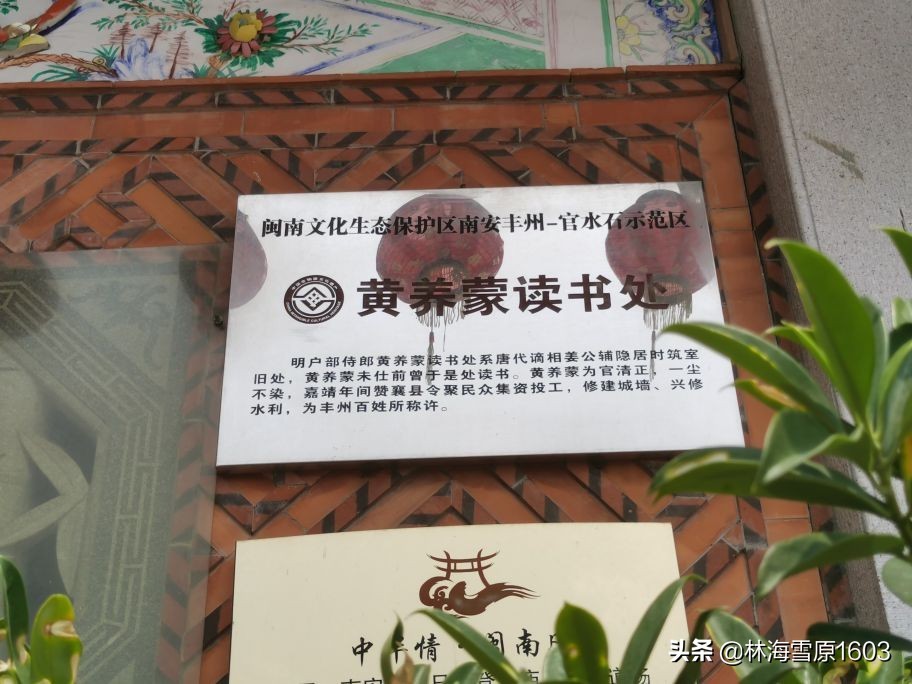 闽南文化生态保护区南安丰州-官水石示范区
黄养蒙读书处
明户部侍郎黄养蒙读书处系唐代谪相姜公辅隐居时筑室
旧处，黄养蒙未仕前曾于是处读书。黄养蒙为官清正，一尘
不染，嘉靖年间赞襄县令聚民众集资投工，修建城墙、兴修
水利，为丰州百姓所称许。
中华情 闽南
头条 @林海雪原1603